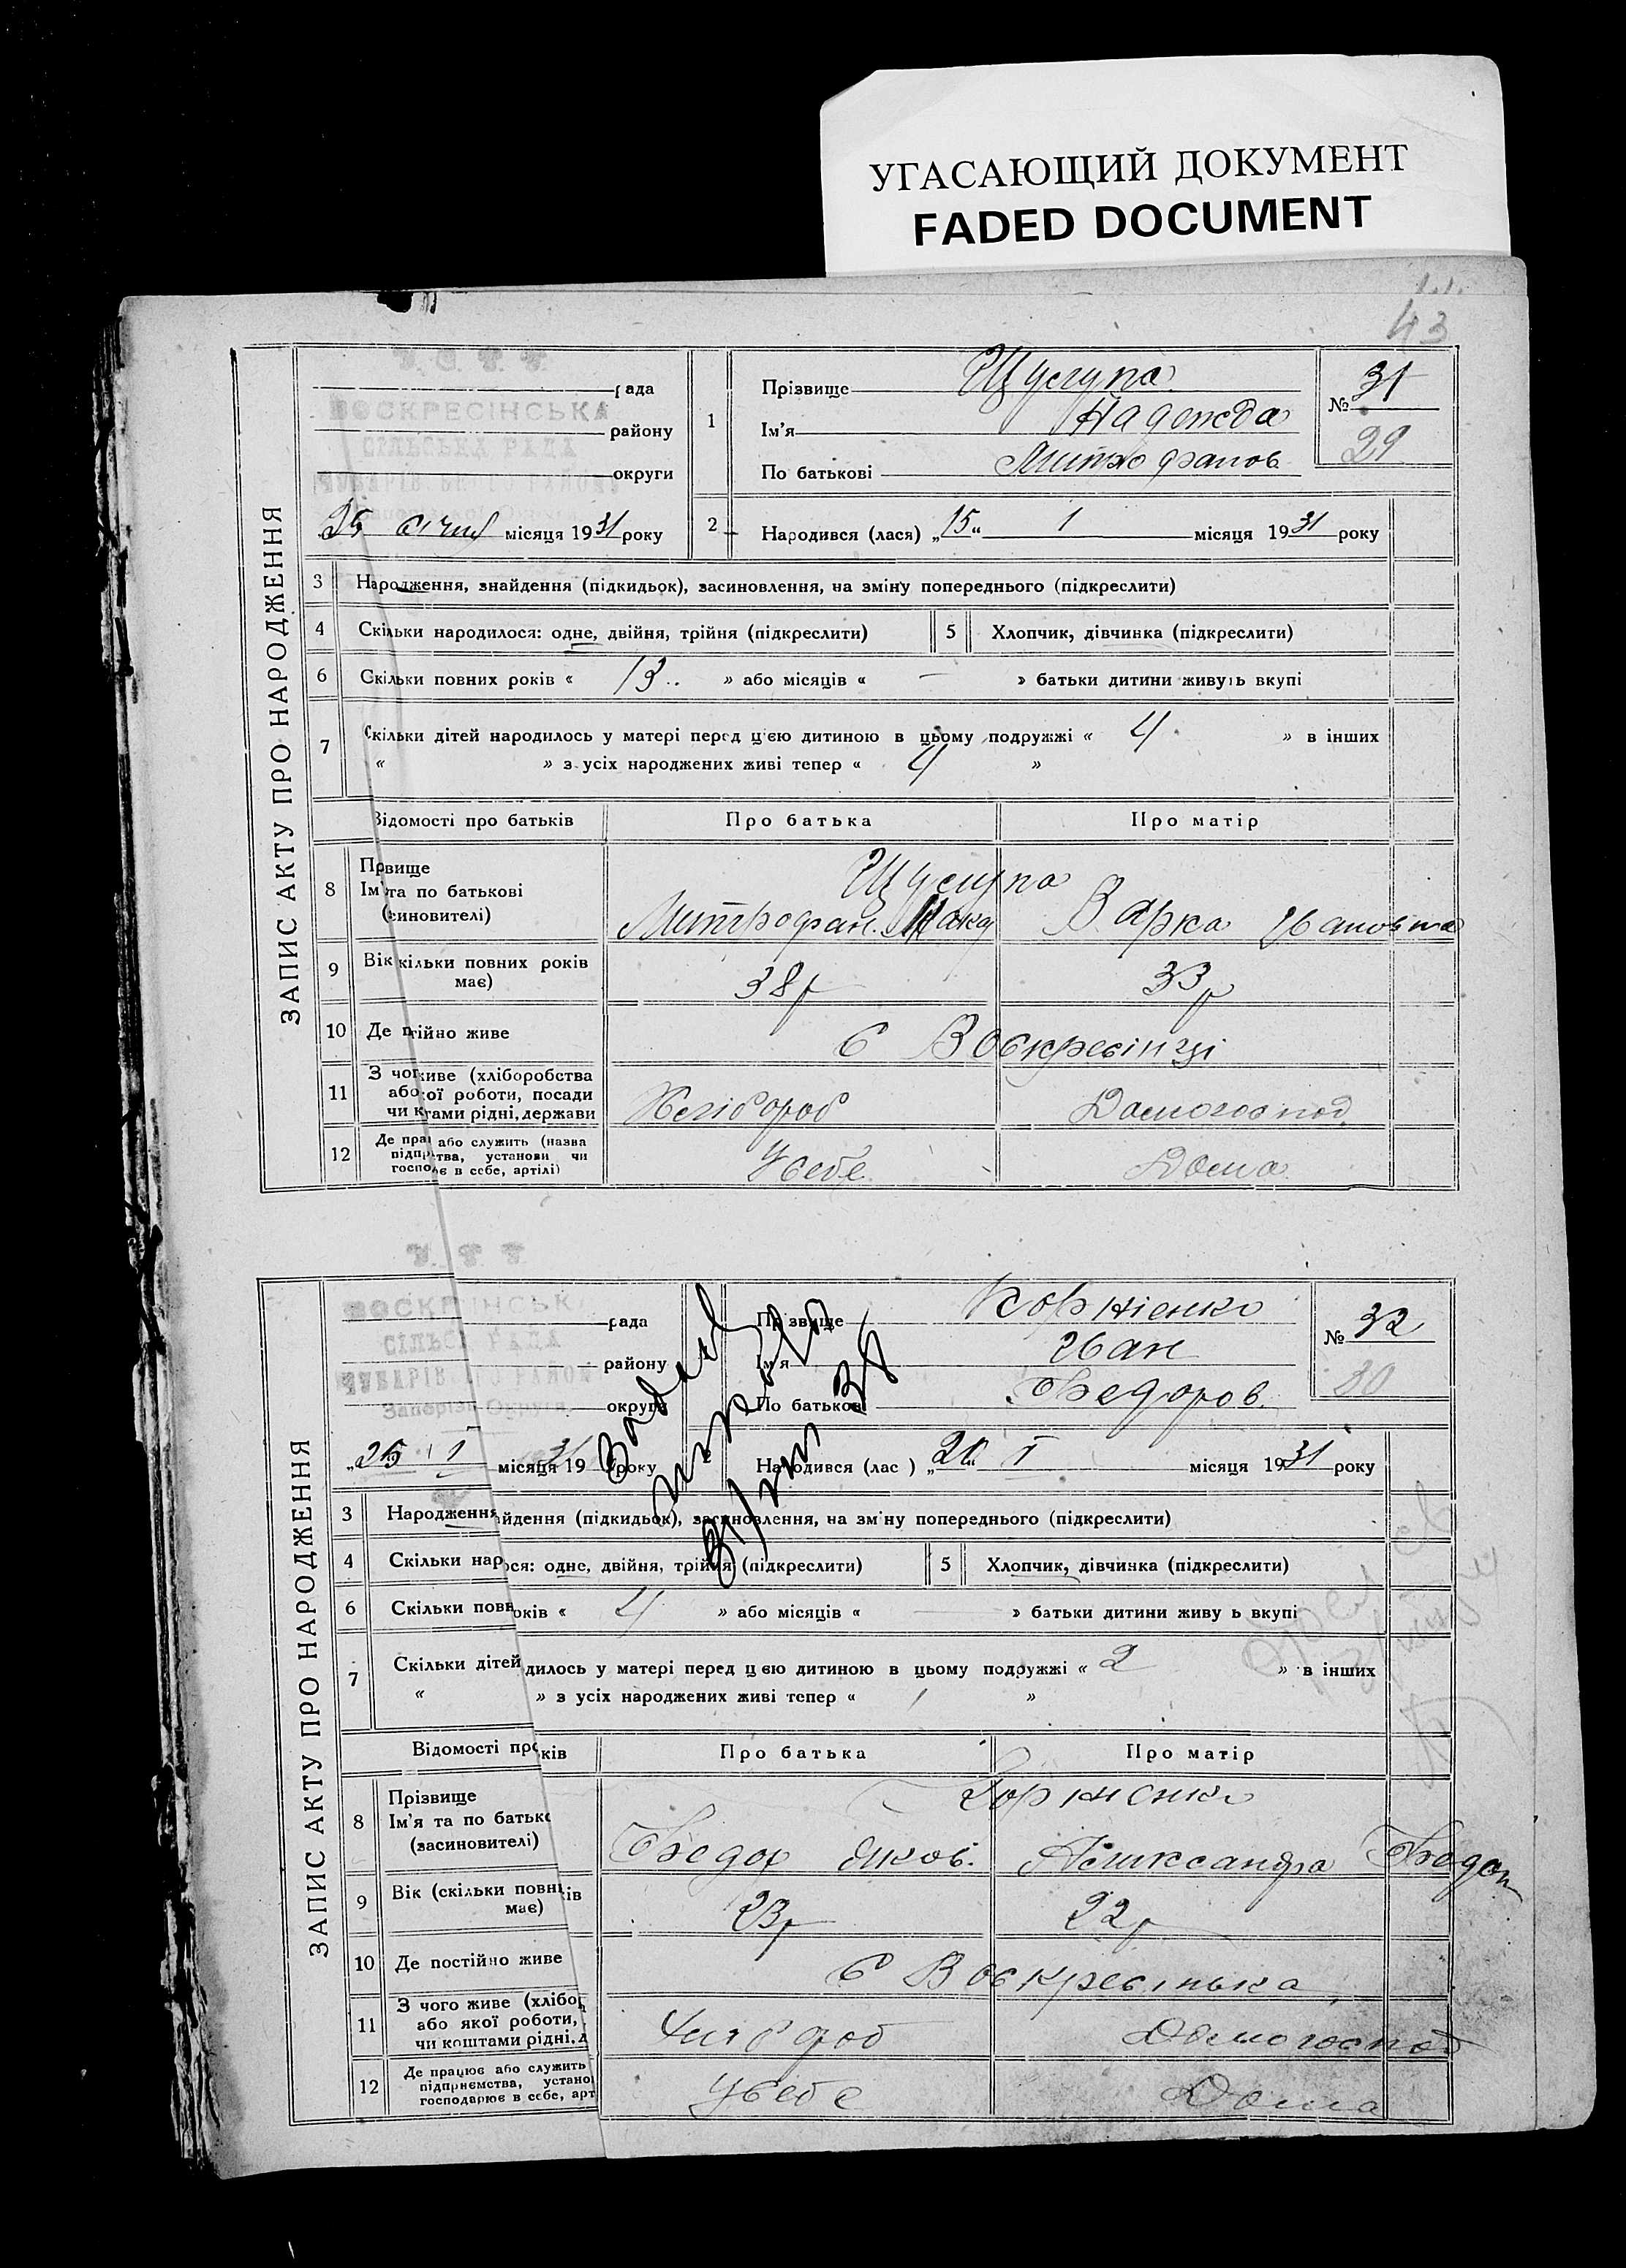 УГАСАЮЩИЙ ДОКУМЕНТ
FADED DOCUMENT
43
ЗАПИС АКТУ ПРО НАРОДЖЕННЯ
У. С. Р. Р.
ВОСКРЕСІНСЬКА
СІЛЬСЬКА РАДА
рада
району
округи
25 січня місяця 1931 року
1
Прізвище
Ім'я Надежда
По батькові Митрофанов
№ 31
29
2 Народився (лася) „15“ 1 місяця 1931 року
3 Народження, знайдення (підкидьок), засиновлення, на зміну попереднього (підкреслити)
4 Скільки народилося: одне, двійня, трійня (підкреслити) 5 Хлопчик, дівчинка (підкреслити)
6 Скільки повних років « 13 » або місяців « — » батьки дитини живуть вкупі
7 Скільки дітей народилось у матері перед цією дитиною в цьому подружжі « 4 » в інших
« » з усіх народжених живі тепер « 4 »
Відомості про батьків Про батька Про матір
8 Првище
Ім'я та по батькові
(синовителі)
Митрофан Варка Ивановна
9 Вік кільки повних років
має)
38 р 33 р
10 Де тійно живе
С Воскресінці
11 З чого живе (хліборобства
або ої роботи, посади
чи к тами рідні, держави
Хлібороб Домогоспод.
12 Де пра або служить (назва
підпр тва, установи чи
господ є в себе, артілі)
У себе Дома
ЗАПИС АКТУ ПРО НАРОДЖЕННЯ
СІЛЬС РАДА
рада
району
округи
„25 I місяця 1931 року
Прізвище Корнієнко
Ім'я Иван
По батькові Федоров.
№ 32
30
2 Народився (лас ) „20“ I місяця 1931 року
3 Народження айдення (підкидьок), засиновлення, на зміну попереднього (підкреслити)
4 Скільки нар ося: одне, двійня, трійня (підкреслити) 5 Хлопчик, дівчинка (підкреслити)
6 Скільки повн оків « 4 » або місяців « — » батьки дитини живу ь вкупі
7 Скільки дітей дилось у матері перед цією дитиною в цьому подружжі « 2 » в інших
« » з усіх народжених живі тепер « 1 »
Відомості про ків Про батька Про матір
8 Прізвище
Ім'я та по батько
(засиновителі)
Корнієнко
Федор Яков. Аликсандра Федор
9 Вік (скільки повни ів
має)
23 р 22 р
10 Де постійно живе
С Воскресінька
11 З чого живе (хлібор
або якої роботи,
чи коштами рідні, д
Хлібороб Домогоспод
12 Де працює або служить
підприємства, устано
господарює в себе, арт
У себе Дома